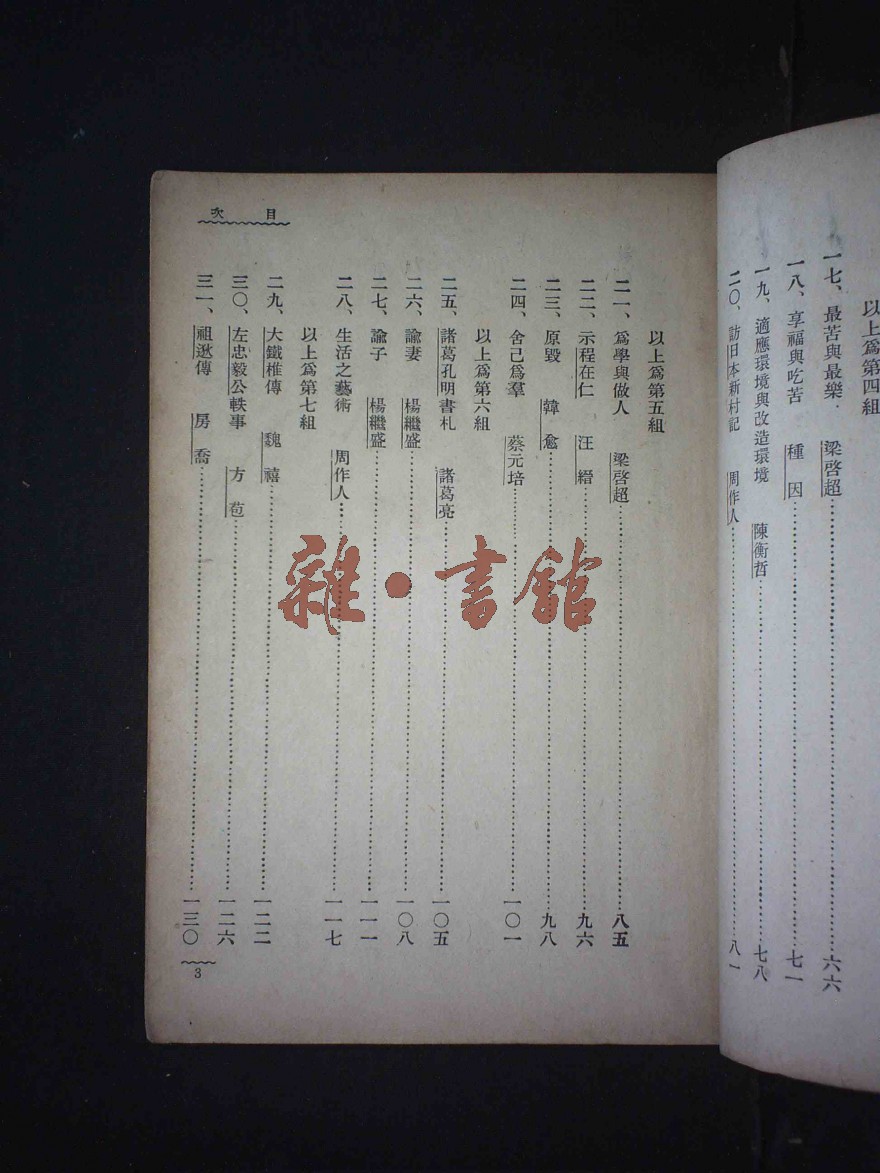 以上爲第四組
一七、最苦與最樂 梁啓超……六六
一八、享福與吃苦 種因……七一
一九、適應環境與改造環境 陳衡哲……七八
二〇、訪日本新村記 周作人……八一
目次
以上爲第五組
二一、爲學與做人 梁啓超……八五
二二、示程在仁 汪縉……九六
二三、原毀 韓愈……九八
二四、舍己爲羣 蔡元培……一〇一
以上爲第六組
二五、諸葛孔明書札 諸葛亮……一〇五
二六、諭妻 楊繼盛……一〇八
二七、諭子 楊繼盛……一一一
二八、生活之藝術 周作人……一一七
以上爲第七組
二九、大鐵椎傳 魏禧……一二二
三〇、左忠毅公軼事 方苞……一二六
三一、祖逖傳 房喬……一三〇
3
雜·書館